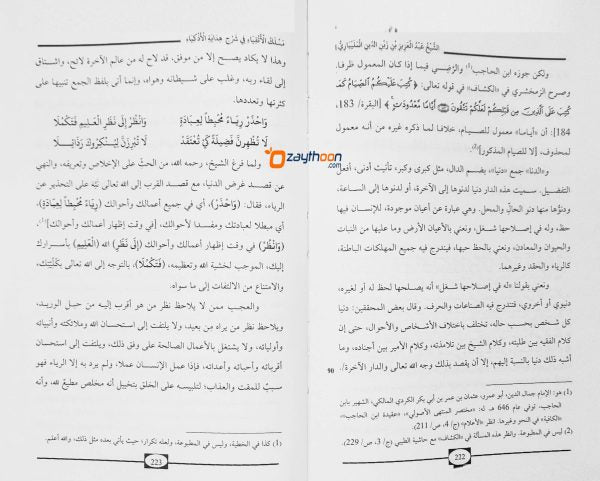 الشَّيْخُ عَبْدُ العَزِيزِ بْنِ زَيْنِ الدِّينِ المَلِيبَارِيُّ
ولكن جوزه ابن الحاجب(1) والرَّضِيُّ فيما إذا كان المعمول ظرفا.
وصرح الزمخشري في «الكشاف» في قوله تعالى: ﴿ كُتِبَ عَلَيْكُمُ الصِّيَامُ كَمَا
كُتِبَ عَلَى الَّذِينَ مِن قَبْلِكُمْ لَعَلَّكُمْ تَتَّقُونَ ۝ أَيَّامًا مَّعْدُودَاتٍ ﴾ [البقرة/ 183,
184]: أن «أياما» معمول للصيام، خلافا لما ذكره غيره من أنه معمول
لمحذوف، [لا للصيام المذكور](2).
و«الدنا» جمع «دنيا»، بضم الدال، مثل كبرى وكبر، تأنيث أدنى، أفعل
التفضيل. سميت هذه الدار دنيا لدنوها إلى الآخرة، أو لدنوها إلى الساعة.
ودنوُّها منها دنو الحالّ والمحل. وهي عبارة عن أعيان موجودة، للإنسان فيها
حظ، وله في إصلاحها شغل، ونعني بالأعيان الأرض وما عليها من النبات
والحيوان والمعادن، ونعني بالحظ حبها، فيندرج فيه جميع المهلكات الباطنة،
كالرياء والحقد وغيرهما.
ونعني بقولنا «له في إصلاحها شغل» أنه يصلحها لحظ له أو لغيره،
دنيوي أو أخروي، فتندرج فيه الصناعات والحرف. وقال بعض المحققين: دنيا
كل شخص بحسب حاله، تختلف باختلاف الأشخاص والأحوال، حتى إن
كلام الفقيه بين طلبته، وكلام الشيخ بين تلامذته، وكلام الأمير بين أجناده، وما
أشبه ذلك دنيا بالنسبة إليهم، إلا أن يقصد بذلك وجه الله تعالى والدار الآخرة/.
90
(1) هو: الإمام جمال الدين، أبو عمرو، عثمان بن عمر بن أبي بكر الكردي المالكي، الشهير بابن
الحاجب، توفي عام 646 هـ. له: «مختصر المنتهى الأصولي»، «عقيدة ابن الحاجب»،
«الكافية» في النحو وغيرها. انظر «الأعلام» (ج/ 4، ص/ 211).
(2) ليس في المطبوعة. وانظر هذه المسألة في «الكشاف» مع حاشية الطيبي (ج/ 3، ص/ 229).
222
مَسْلَكُ الأَتْقِيَاءِ فِي شَرْحِ هِدَايَةِ الأَذْكِيَاءِ
وهذا لا يكاد يصح إلا من موفق، قد لاح له من عالم الآخرة لائح، واشتاق
إلى لقاء ربه، وغلب على شيطانه وهواه، وإنما أتى بلفظ الجمع تنبيها على
كثرتها وتعددها.
وَاحْذَرْ رِيَاءً مُحْبِطاً لِعِبَادَةٍ وَانْظُرْ إِلَى نَظَرِ الْعَلِيمِ فَتَكْمُلَا
لَا تُظْهِرَنَّ فَضِيلَةً كَيْ تُعْتَقَدَ لَا تُبْرِزَنَّ لِيُنْكِرُوكَ رَذَائِلَا
ولما فرغ الشيخ، رحمه الله، من الحثّ على الإخلاص وتعريفه، والنهي
عن قصد غرض الدنيا، مع قصد القرب إلى الله تعالى نبّه على التحذير عن
الرياء، فقال: (وَاحْذَرْ)، أي في جميع أعمالك وأحوالك (رِيَاءً مُحْبِطاً لِعِبَادَةٍ)،
أي مبطلا لعبادتك ومفسدا لأحوالك، [في وقت إظهار أعمالك وأحوالك](1)،
(وَانْظُرْ) في وقت إظهار أعمالك وأحوالك (إِلَى نَظَرِ) الله (الْعَلِيمِ) بأسرارك
إليك، الموجب لخشية الله وتعظيمه، (فَتَكْمُلَا)، بالتوجه إلى الله تعالى بكليّتك،
والامتناع من الالتفات إلى ما سواه.
والعجب ممن لا يلاحظ نظر من هو أقرب إليه من حبل الوريد،
ويلاحظ نظر من يراه من بعيد، ولا يلتفت إلى استحسان الله وملائكته وأنبيائه
وأوليائه، ولا يشتغل بالأعمال الصالحة على وفق ذلك، ويلتفت إلى استحسان
أقربائه وأحبائه وأعدائه، فإذا عمل الإنسان عملا، ولم يرد به إلا الرياء فهو
سببٌ للمقت والعذاب؛ لتلبيسه على الخلق بتخييل أنه مخلص مطيعٌ لله، وأنه
(1) كذا في الخطية، وليس في المطبوعة، ولعله تكرار؛ حيث يأتي بعده مثل ذلك، والله أعلم.
223
Ozaythoon
.com